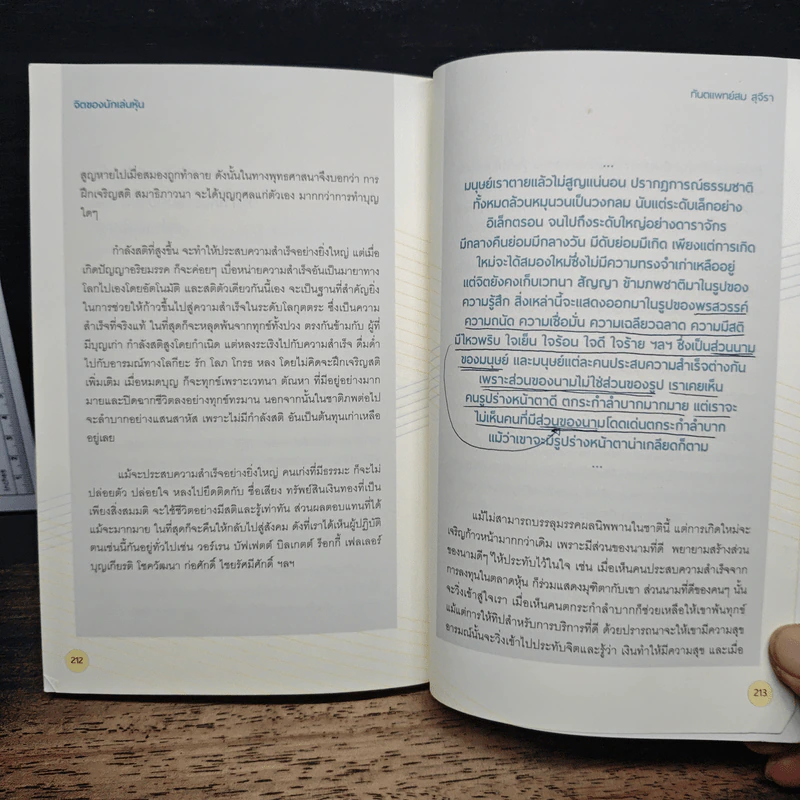 จิตของนักเล่นหุ้น
สูญหายไปเมื่อสมองถูกทำลาย ดังนั้นในทางพุทธศาสนาจึงบอกว่า การ
ฝึกเจริญสติ สมาธิภาวนา จะได้บุญกุศลแก่ตัวเอง มากกว่าการทำบุญ
ใดๆ
กำลังสติที่สูงขึ้น จะทำให้ประสบความสำเร็จอย่างยิ่งใหญ่ แต่เมื่อ
เกิดปัญญาอริยมรรค ก็จะค่อยๆ เบื่อหน่ายความสำเร็จอันเป็นมายาทาง
โลกไปเองโดยอัตโนมัติ และสติตัวเดียวกันนี้เอง จะเป็นฐานที่สำคัญยิ่ง
ในการช่วยให้ก้าวขึ้นไปสู่ความสำเร็จในระดับโลกุตตระ ซึ่งเป็นความ
สำเร็จที่จริงแท้ ในที่สุดก็จะหลุดพ้นจากทุกข์ทั้งปวง ตรงกันข้ามกับ ผู้ที่
มีบุญเก่า กำลังสติสูงโดยกำเนิด แต่หลงระเริงไปกับความสำเร็จ ดื่มด่ำ
ไปกับอารมณ์ทางโลกียะ รัก โลภ โกรธ หลง โดยไม่คิดจะฝึกเจริญสติ
เพิ่มเติม เมื่อหมดบุญ ก็จะทุกข์เพราะเวทนา ตัณหา ที่มีอยู่อย่างมาก
มายและปิดฉากชีวิตลงอย่างทุกข์ทรมาน นอกจากนั้นในชาติภพต่อไป
จะลำบากอย่างแสนสาหัส เพราะไม่มีกำลังสติ อันเป็นต้นทุนเก่าเหลือ
อยู่เลย
แม้จะประสบความสำเร็จอย่างยิ่งใหญ่ คนเก่งที่มีธรรมะ ก็จะไม่
ปล่อยตัว ปล่อยใจ หลงไปยึดติดกับ ชื่อเสียง ทรัพย์สินเงินทองที่เป็น
เพียงสิ่งสมมติ จะใช้ชีวิตอย่างมีสติและรู้เท่าทัน ส่วนผลตอบแทนที่ได้
แม้จะมากมาย ในที่สุดก็จะคืนให้กลับไปสู่สังคม ดังที่เราได้เห็นผู้ปฏิบัติ
ตนเช่นนี้กันอยู่ทั่วไปเช่น วอร์เรน บัฟเฟตต์ บิลเกตต์ ร็อกกี้ เฟลเลอร์
บุญเกียรติ โชควัฒนา ก่อศักดิ์ ไชยรัศมีศักดิ์ ฯลฯ
212
ทันตแพทย์สม สุจีรา
...
มนุษย์เราตายแล้วไม่สูญแน่นอน ปรากฏการณ์ธรรมชาติ
ทั้งหมดล้วนหมุนวนเป็นวงกลม นับแต่ระดับเล็กอย่าง
อิเล็กตรอน จนไปถึงระดับใหญ่อย่างดาราจักร
มีกลางคืนย่อมมีกลางวัน มีดับย่อมมีเกิด เพียงแต่การเกิด
ใหม่จะได้สมองใหม่ซึ่งไม่มีความทรงจำเก่าเหลืออยู่
แต่จิตยังคงเก็บเวทนา สัญญา ข้ามภพชาติมาในรูปของ
ความรู้สึก สิ่งเหล่านี้จะแสดงออกมาในรูปของพรสวรรค์
ความถนัด ความเชื่อมั่น ความเฉลียวฉลาด ความมีสติ
มีไหวพริบ ใจเย็น ใจร้อน ใจดี ใจร้าย ฯลฯ ซึ่งเป็นส่วนนาม
ของมนุษย์ และมนุษย์แต่ละคนประสบความสำเร็จต่างกัน
เพราะส่วนของนามไม่ใช่ส่วนของรูป เราเคยเห็น
คนรูปร่างหน้าตาดี ตกระกำลำบากมากมาย แต่เราจะ
ไม่เห็นคนที่มีส่วนของนามโดดเด่นตกระกำลำบาก
แม้ว่าเขาจะมีรูปร่างหน้าตาน่าเกลียดก็ตาม
...
แม้ไม่สามารถบรรลุมรรคผลนิพพานในชาตินี้ แต่การเกิดใหม่จะ
เจริญก้าวหน้ามากกว่าเดิม เพราะมีส่วนของนามที่ดี พยายามสร้างส่วน
ของนามดีๆ ให้ประทับไว้ในใจ เช่น เมื่อเห็นคนประสบความสำเร็จจาก
การลงทุนในตลาดหุ้น ก็ร่วมแสดงมุฑิตากับเขา ส่วนนามที่ดีของคนๆ นั้น
จะวิ่งเข้าสู่ใจเรา เมื่อเห็นคนตกระกำลำบากก็ช่วยเหลือให้เขาพ้นทุกข์
แม้แต่การให้ทิปสำหรับการบริการที่ดี ด้วยปรารถนาจะให้เขามีความสุข
อารมณ์นั้นจะวิ่งเข้าไปประทับจิตและรู้ว่า เงินทำให้มีความสุข และเมื่อ
213